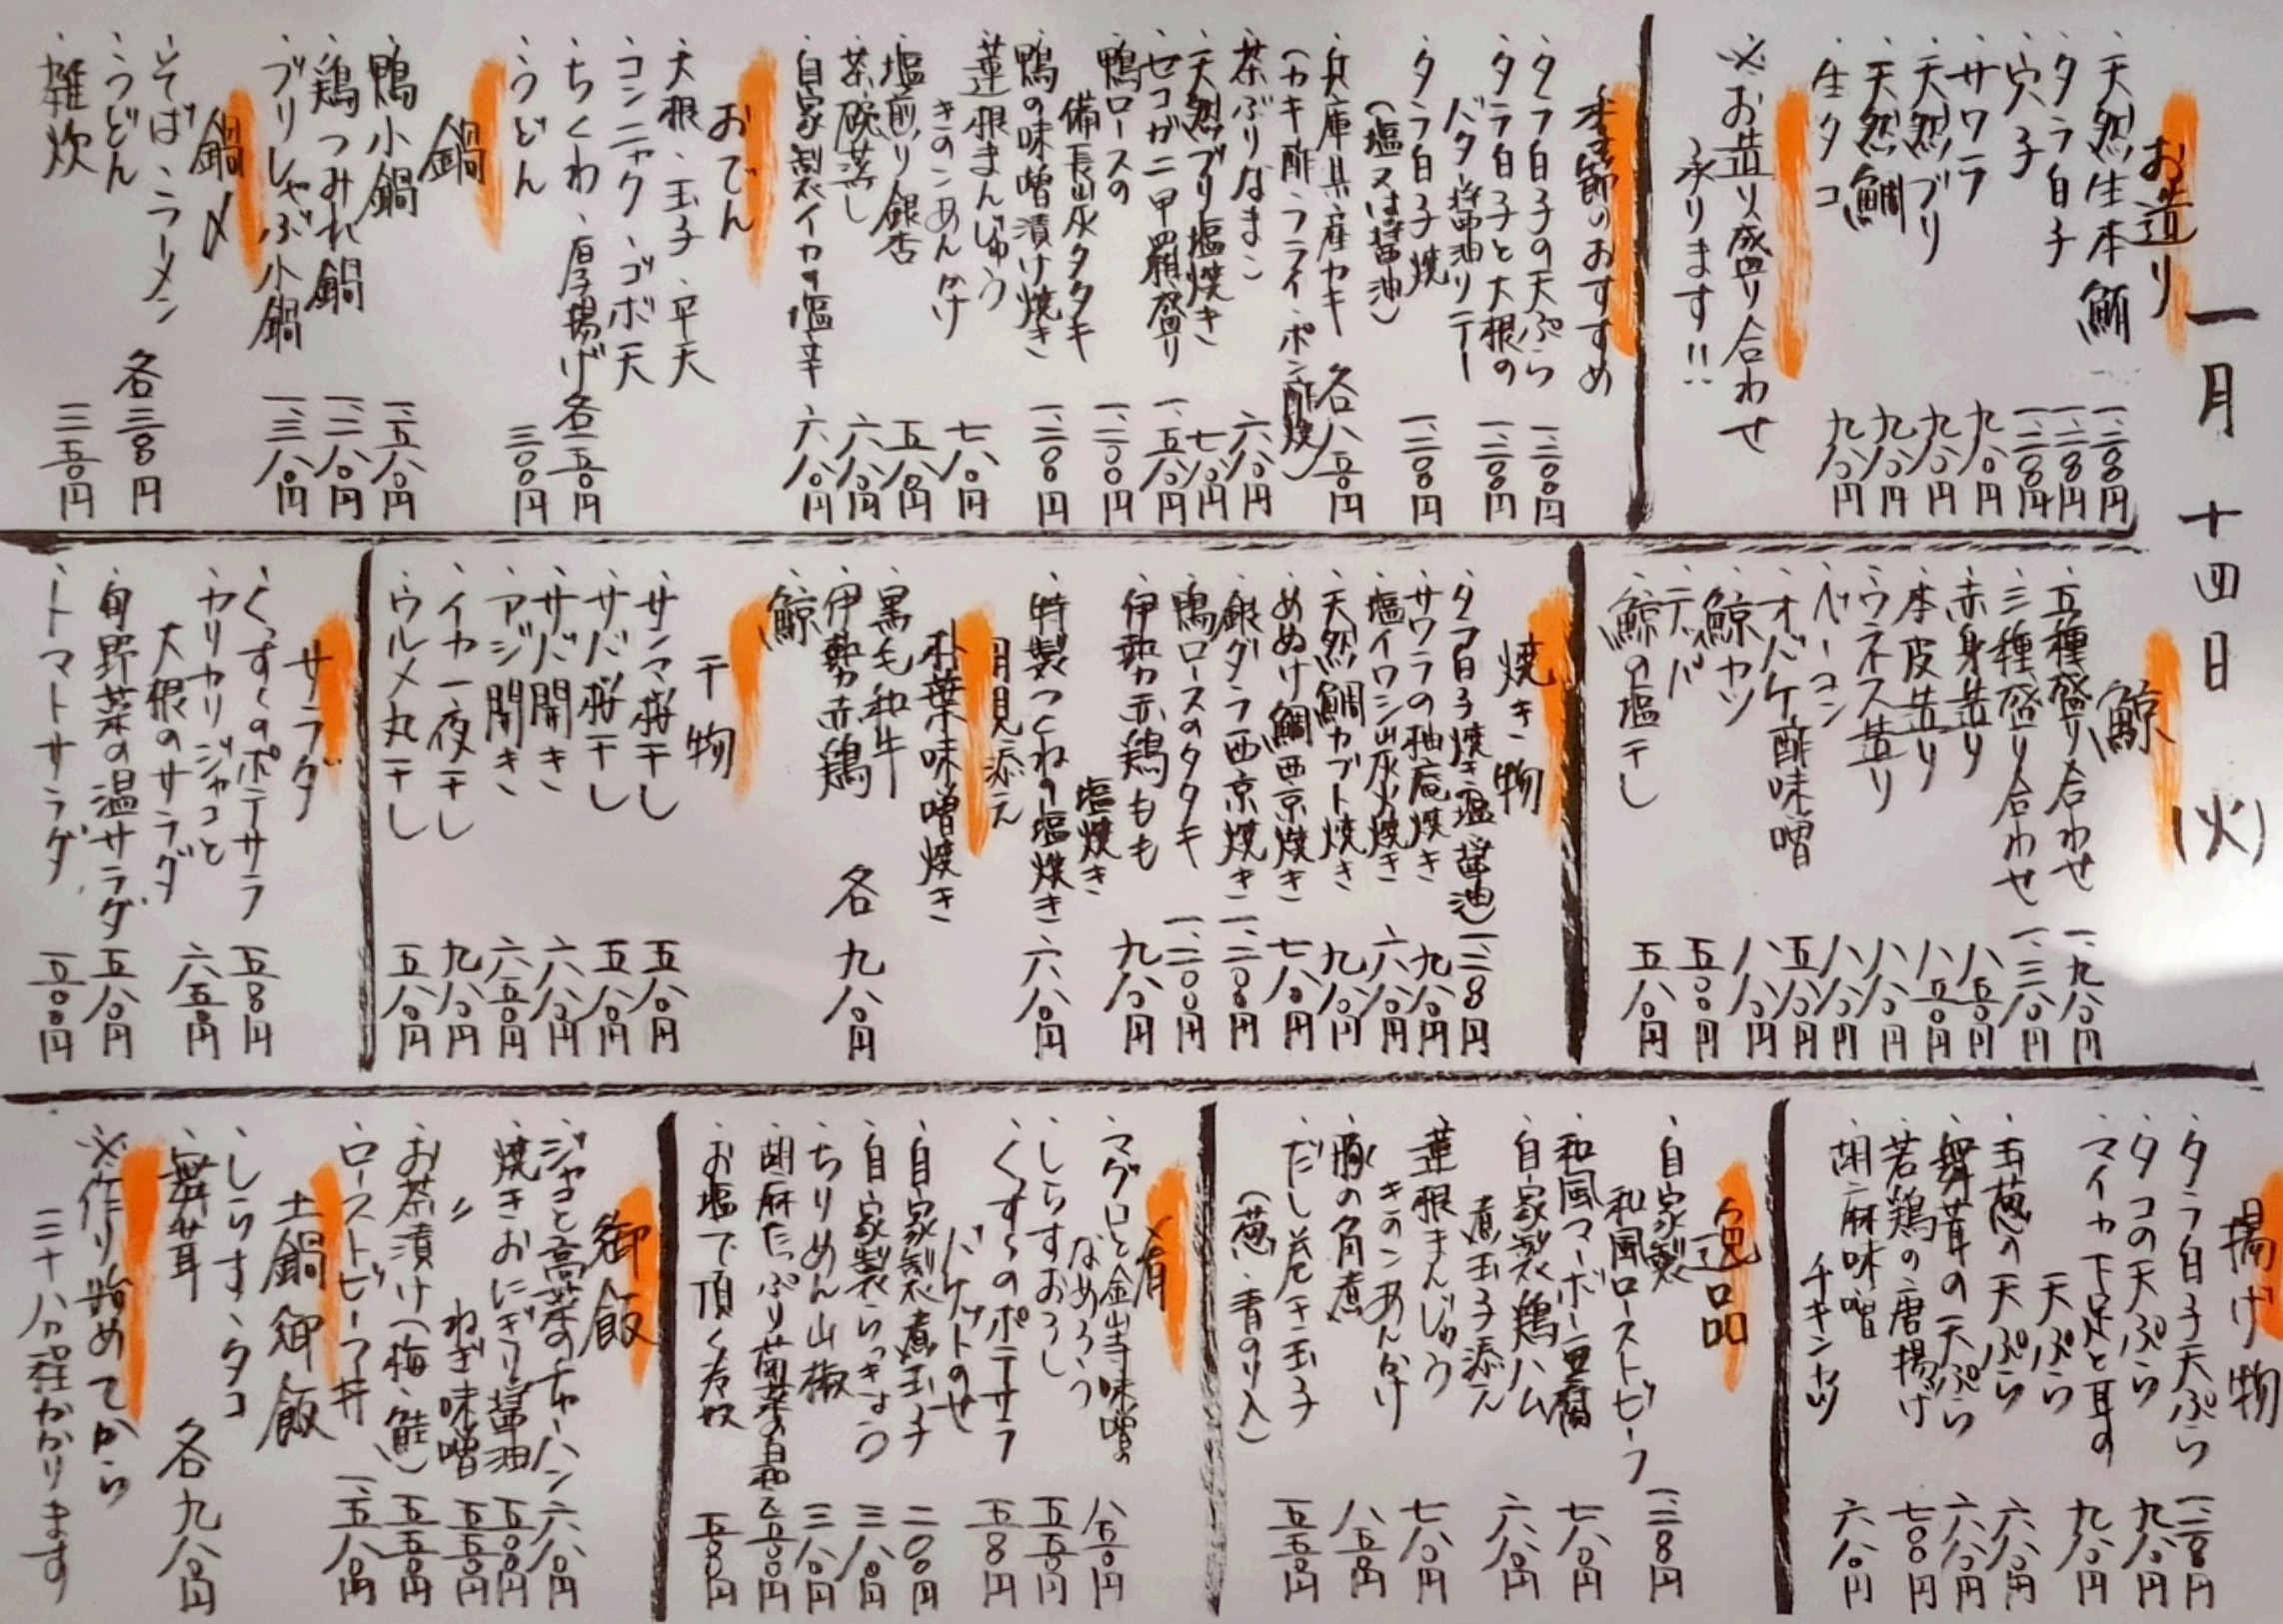 一月十四日(火)
お造り
・天然生本鮪 一、二〇〇円
・タラ白子 一、二〇〇円
・穴子 一、二〇〇円
・サワラ 九八〇円
・天然ブリ 九八〇円
・天然鯛 九八〇円
・生タコ 九八〇円
※お造り盛り合わせ
承ります!!
季節のおすすめ
・タラ白子の天ぷら 一、二〇〇円
・タラ白子と大根の
バター醤油ソテー 一、二〇〇円
・タラ白子焼
(塩又は醤油) 一、二〇〇円
・兵庫県産カキ 各八五〇円
(カキ酢・フライ・ポン酢焼)
・茶ぶりなまこ 六八〇円
・天然ブリ塩焼き 七八〇円
・セコガニ甲羅盛り 一、五八〇円
・鴨ロースの
備長炭タタキ 一、二〇〇円
・鴨の味噌漬け焼き 一、二〇〇円
・蓮根まんじゅう
きのこあんかけ 七八〇円
・塩煎り銀杏 五八〇円
・茶碗蒸し 六八〇円
・自家製イカの塩辛 六八〇円
おでん
・大根・玉子・平天
・コンニャク・ゴボ天
・ちくわ・厚揚げ 各二五〇円
・うどん 三〇〇円
鍋
・鴨小鍋 一、五八〇円
・鶏つみれ鍋 一、二八〇円
・ブリしゃぶ小鍋 一、三八〇円
鍋〆
・そば・ラーメン
・うどん 各三〇〇円
・雑炊 三五〇円
鯨
・五種盛り合わせ 一、九八〇円
・三種盛り合わせ 一、三八〇円
・赤身造り 八五〇円
・本皮造り 八五〇円
・ウネス造り 八八〇円
・ベーコン 八八〇円
・オバケ酢味噌 五八〇円
・鯨カツ 八八〇円
・テッパ 五〇〇円
・鯨の塩干し 五八〇円
焼き物
・タラ白子焼き(塩・醤油) 一、二〇〇円
・サワラの柚庵焼き 九八〇円
・塩イワシ炭火焼き 六八〇円
・天然鯛カブト焼き 九八〇円
・めぬけ鯛西京焼き 七八〇円
・銀ダラ西京焼き 一、二〇〇円
・鴨ロースのタタキ 一、二〇〇円
・伊勢赤鶏もも
塩焼き 九八〇円
・特製つくねの塩焼き 六八〇円
月見添え
朴葉味噌焼き
・黒毛和牛
・伊勢赤鶏 各九八〇円
・鯨
干物
・サンマ桜干し 五八〇円
・サバ桜干し 五八〇円
・サバ開き 六八〇円
・アジ開き 六五〇円
・イカ一夜干し 九八〇円
・ウルメ丸干し 五八〇円
サラダ
・くすくのポテサラ 五〇〇円
・カリカリジャコと
大根のサラダ 六五〇円
・旬野菜の温サラダ 五八〇円
・トマトサラダ 五〇〇円
揚げ物
・タラ白子天ぷら 一、二〇〇円
・タコの天ぷら 九八〇円
・マイカ下足と耳の
天ぷら 九八〇円
・玉葱の天ぷら 六八〇円
・舞茸の天ぷら 六八〇円
・若鶏の唐揚げ 七〇〇円
・胡麻味噌
チキンカツ 六八〇円
逸品
・自家製
和風ローストビーフ 一、二〇〇円
・和風マーボー豆腐 七八〇円
・自家製鶏ハム
煮玉子添え 六八〇円
・蓮根まんじゅう
きのこあんかけ 七八〇円
・豚の角煮 八五〇円
・だし巻き玉子
(葱・青のり入) 五五〇円
肴
・マグロと金山寺味噌の
なめろう 八五〇円
・しらすおろし 五五〇円
・くすくのポテサラ
バゲットのせ 五〇〇円
・自家製煮玉子 二〇〇円
・自家製らっきょう 三八〇円
・ちりめん山椒 三八〇円
・胡麻たっぷり菊菜の白和え 五〇〇円
・お塩で頂く冷奴 五〇〇円
御飯
・ジャコと高菜のチャーハン 六八〇円
・焼きおにぎり醤油 五〇〇円
・〃 ねぎ味噌 五五〇円
・お茶漬け(梅・鮭) 五五〇円
・ローストビーフ丼 一、五八〇円
土鍋御飯
・しらす・タコ
・舞茸 各九八〇円
※作り始めてから
三十八分程かかります